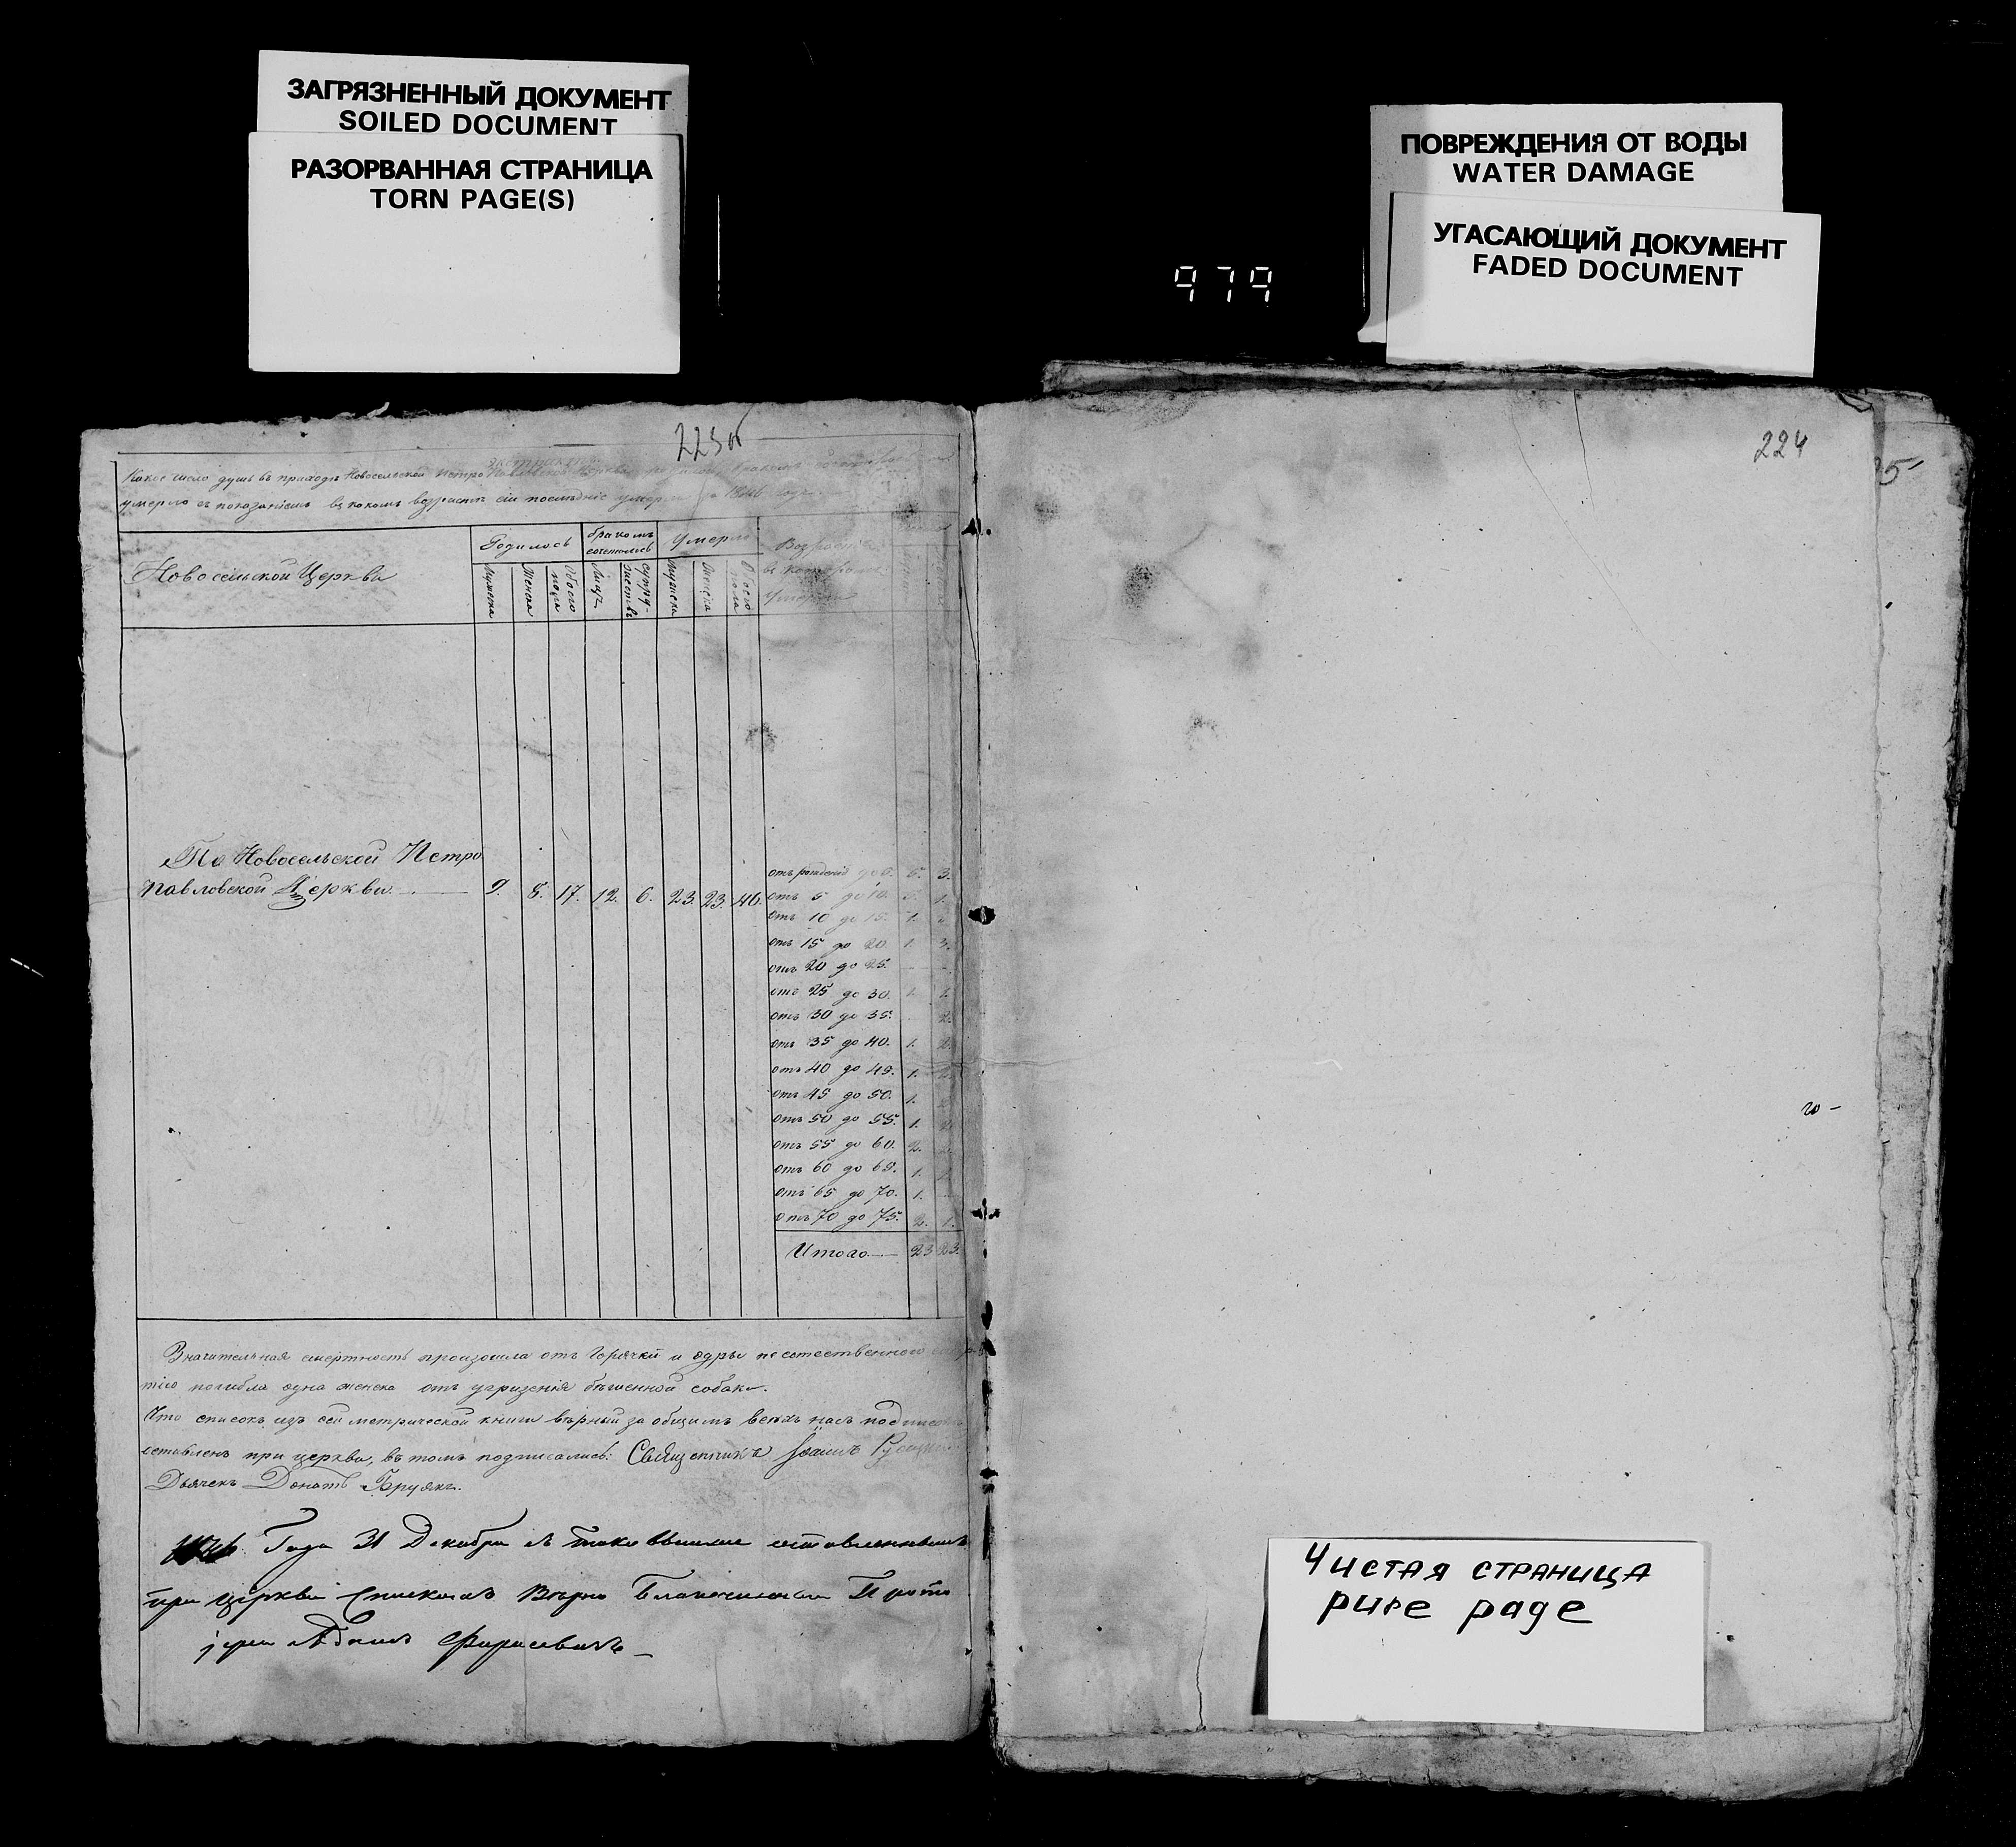 ЗАГРЯЗНЕННЫЙ ДОКУМЕНТ
SOILED DOCUMENT
РАЗОРВАННАЯ СТРАНИЦА
TORN PAGE(S)
ПОВРЕЖДЕНИЯ ОТ ВОДЫ
WATER DAMAGE
УГАСАЮЩИЙ ДОКУМЕНТ
FADED DOCUMENT
979
223об
Какое число душъ въ приходѣ Новосельской Петро Павловской
умерло съ показаніемъ въ какомъ возрастѣ сіи послѣдніе умерли 1846 года
Новосельской Церкви
Родилось
бракомъ сочеталось
Умерло
Возрастъ
въ которомъ
Умерли
Мужеска
Женска
Обоего пола
Лицъ
супружествъ
Мужеска
Женска
Обоего пола
По Новосельской Петро
Павловской Церкви 9. 8. 17. 12. 6. 23. 23. 46.
отъ рожденія до 5. 3.
отъ 5 до 10. 1.
отъ 10 до 15. 1.
отъ 15 до 20. 1. 3.
отъ 20 до 25.
отъ 25 до 30. 1. 1.
отъ 30 до 35. 2.
отъ 35 до 40. 1. 2.
отъ 40 до 45. 1. 2.
отъ 45 до 50. 1.
отъ 50 до 55. 1.
отъ 55 до 60. 2.
отъ 60 до 65. 1.
отъ 65 до 70. 1.
отъ 70 до 75. 2. 1.
Итого 23 23.
Значительная смертность произошла отъ Горячки и одры несстественного
тію погибла одна женска отъ угризенія бѣшенной собаки.
Что списокъ изъ сей метрической книги вѣрный за общимъ всѣхъ насъ подписомъ
оставленъ при церкви, въ томъ подписались: Священникъ Іоаннъ
Дьячекъ Донатъ Бруякъ.
1846 Года 31 Декабря съ таковымже оставленнымъ
при церкви Спискомъ Вѣрно Благочинный Прото
іерей Адамъ
224
Чистая страница
pure page